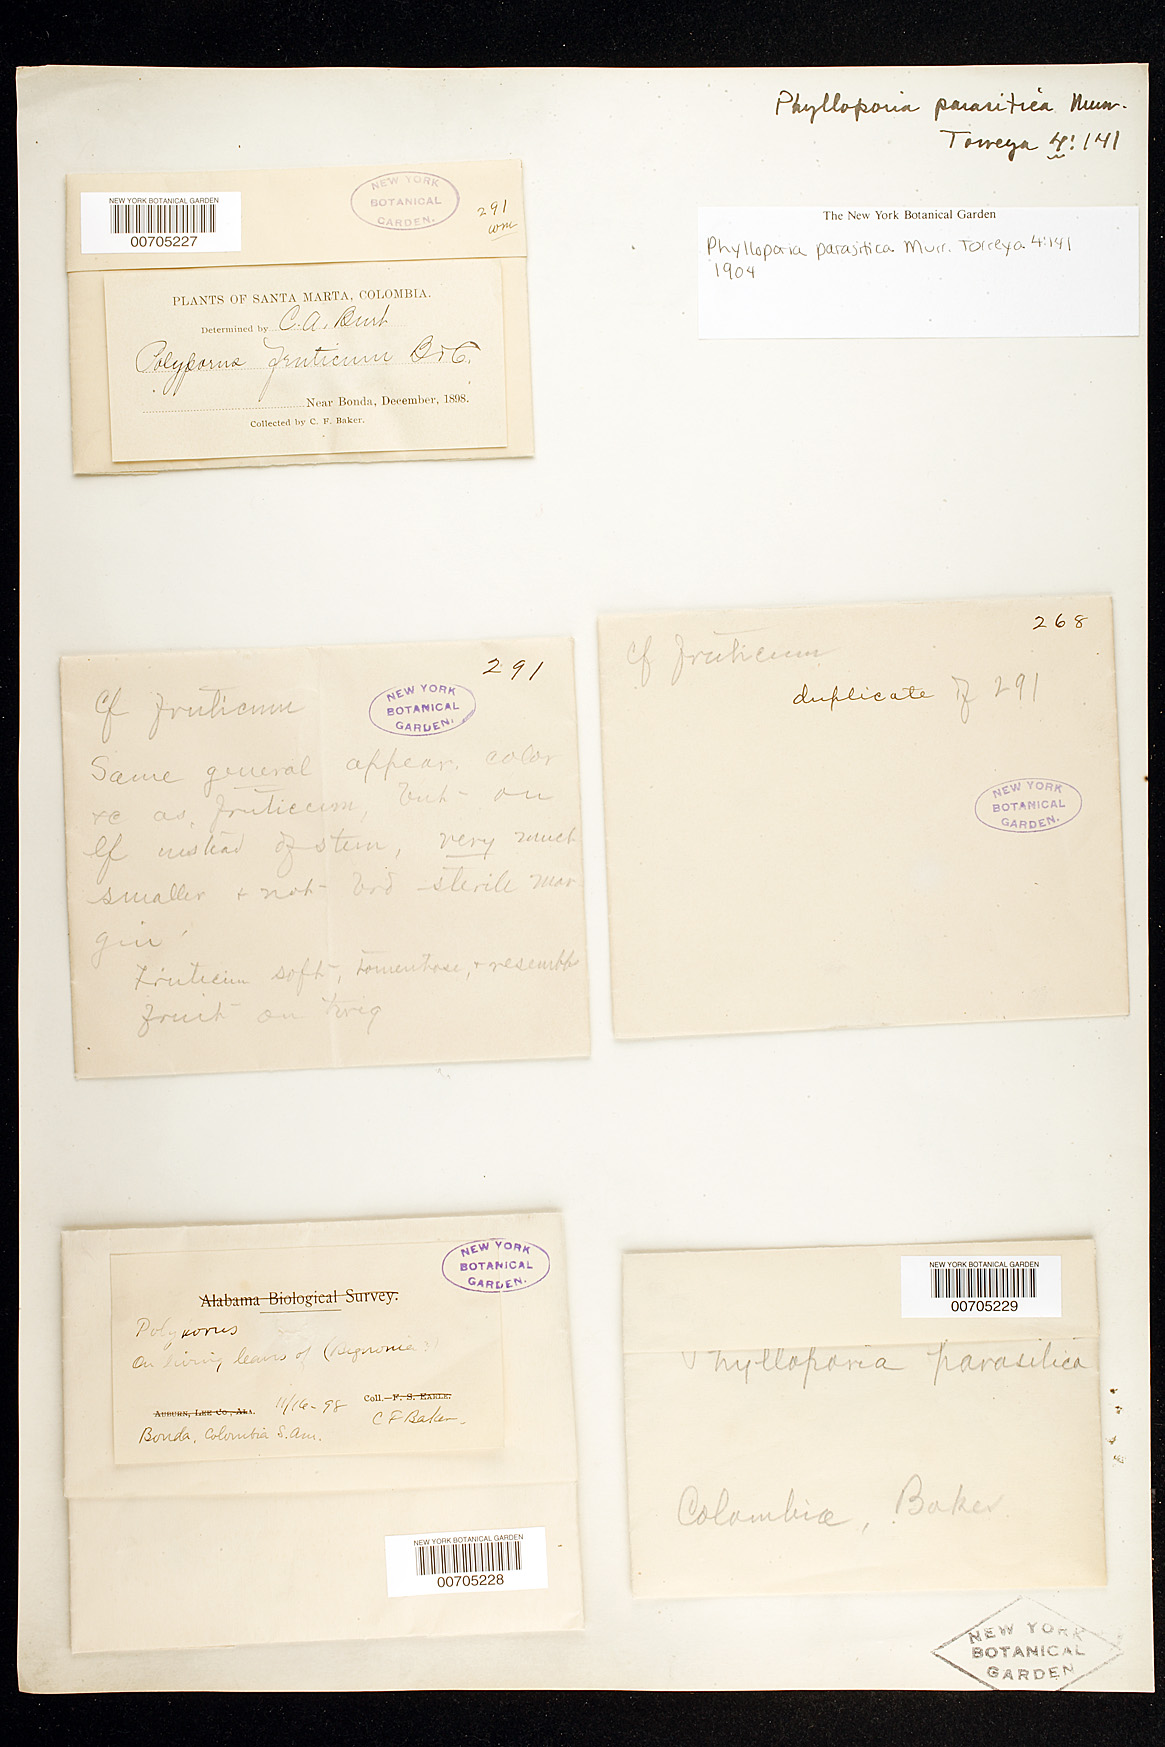 Phylloporia parasitica Murr.
Torreya 4:141
NEW YORK BOTANICAL GARDEN
00705227
NEW YORK
BOTANICAL
GARDEN.
291
wm
The New York Botanical Garden
Phylloporia parasitica Murr. Torreya 4:141
1904
PLANTS OF SANTA MARTA, COLOMBIA.
Determined by C. A. Burt
Polyporus fruticum B&C.
Near Bonda, December, 1898.
Collected by C. F. Baker.
291
NEW YORK
BOTANICAL
GARDEN.
Cf fruticum
Same general appear. color
+c as fruticum, but on
lf instead of stem, very much
smaller + not brd sterile mar
gin
Fruticum soft, tomentose, + resembles
fruit on twig
268
Cf fruticum
duplicate of 291
NEW YORK
BOTANICAL
GARDEN.
NEW YORK
BOTANICAL
GARDEN.
Alabama Biological Survey.
Polyporus
On living leaves of (Bignonia?)
Coll.—F. S. EARLE.
AUBURN, LEE CO., ALA. 11/16-98
C F Baker
Bonda, Colombia S. Am.
NEW YORK BOTANICAL GARDEN
00705228
NEW YORK BOTANICAL GARDEN
00705229
Phylloporia parasitica
Colombia, Baker
NEW YORK
BOTANICAL
GARDEN